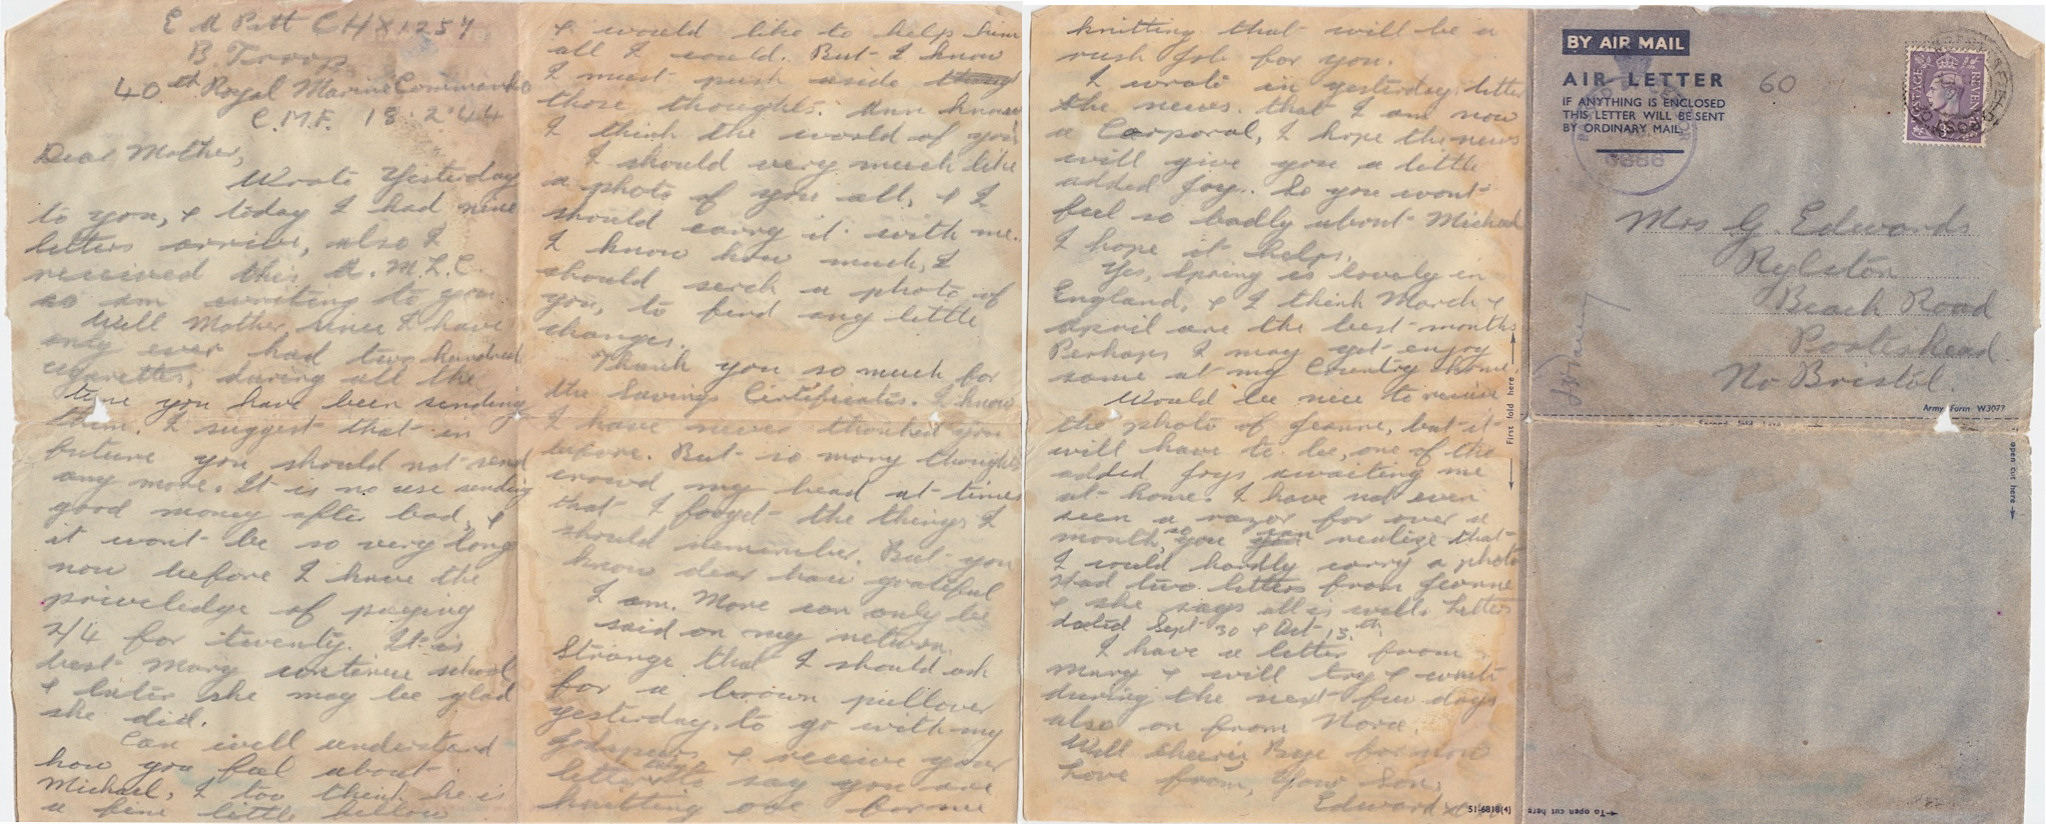 E A Pitt CHX1257
B. Troop
40th Royal Marine Commando
C.M.F. 18.2.44
Dear Mother,
Wrote Yesterday
to you, & today I had nine
letters arrive, also I
received this A.M.L.C.
so am writing to you.
Well Mother, since I have
only ever had two hundred
cigarettes, during all the
time you have been sending
them. I suggest that in
future you should not send
any more. It is no use sending
good money after bad, &
it wont be so very long
now before I have the
priveledge of paying
2/4 for twenty. It is
best Mary continue school
& later she may be glad
she did.
Can well understand
how you feel about
Michael, I too think he is
a fine little fellow
& would like to help him
all I could. But I know
I must push aside
those thoughts. Ann knows
I think the world of you.
I should very much like
a photo of you all, & I
should carry it with me.
I know how much, I
should serch a photo of
you, to find any little
changes.
Thank you so much for
the Savings Certificates. I know
I have never thanked you
before. But so many thoughts
crowd my head at times
that I forget the things I
should remember. But you
know dear how grateful
I am. More can only be
said on my return.
Strange that I should ask
for a brown pullover
yesterday, to go with my
& receive your
letter to say you are
knitting one for me
knitting that will be a
rush job for you.
I wrote in yesterdays letter
the news. that I am now
a Corporal, I hope the news
will give you a little
added joy. So you wont
feel so badly about Michael
I hope it helps.
Yes, Spring is lovely in
England, & I think March &
april are the best months
Perhaps I may yet enjoy
some at my Country Home.
Would be nice to receive
the photo of Jeanne, but it
will have to be, one of the
added joys awaiting me
at home. I have not even
seen a razor for over a
month, so you can realize that
I could hardly carry a photo
Had two letters from Jeanne
& she says all is well. Letters
dated Sept 30 & Oct 13th.
I have a letter from
Mary & will try & write
during the next few days
also on from Nora.
Well cheerie Bye for now
Love from, Your Son,
Edward
51-6818(4)
First fold here
BY AIR MAIL
AIR LETTER
IF ANYTHING IS ENCLOSED
THIS LETTER WILL BE SENT
BY ORDINARY MAIL
60
POSTAGE
REVENUE
Mrs G. Edwards
Rylston
Beach Road
Portishead
Nr Bristol.
Army Form W3077
Second fold here
To open cut here
To open cut here